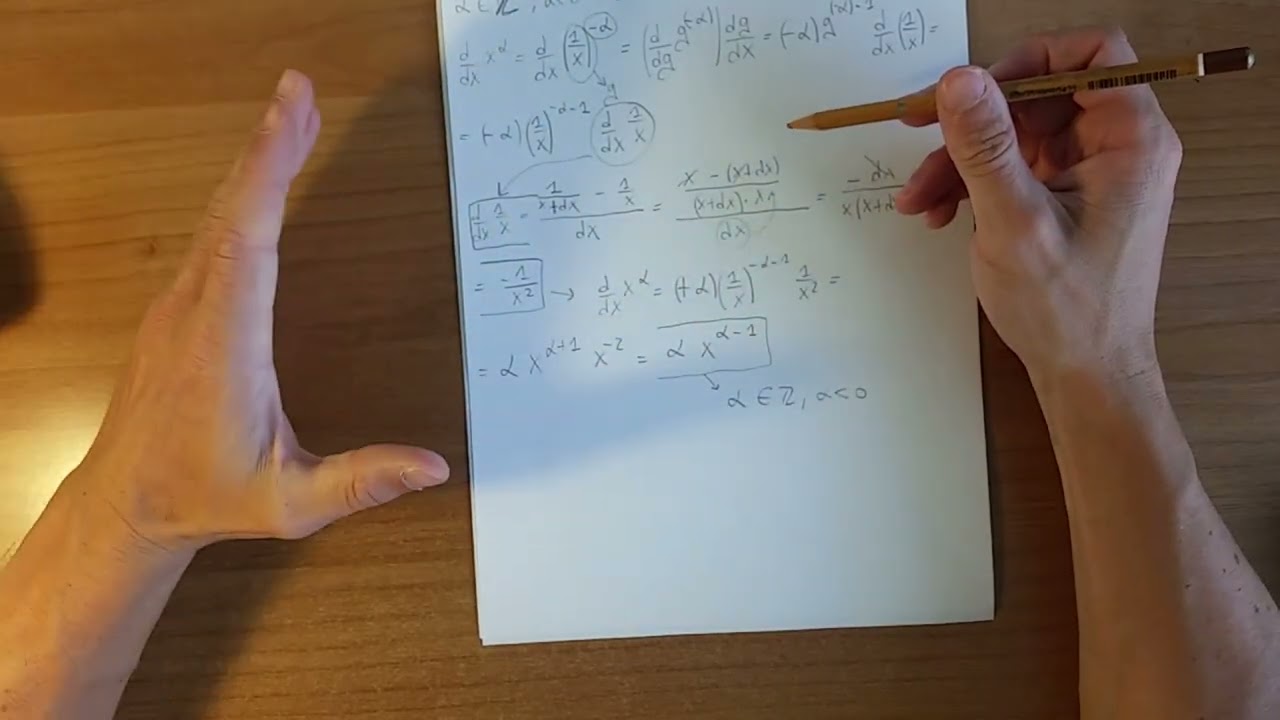 α ∈ ℤ,
d/dx x^α = d/dx (1/x)^(-α) = (d/dg g^(-α)) dg/dx = (-α) g^((-α)-1) d/dx (1/x) =
g
= (-α) (1/x)^(-α-1) (d/dx 1/x)
d/dx 1/x = (1/(x+dx) - 1/x)/dx = ((x - (x+dx))/((x+dx)·x))/dx = -dx/(x(x+d
= -1/x² → d/dx x^α = (+α) (1/x)^(-α-1) 1/x² =
= α x^(α+1) x^(-2) = α x^(α-1)
α ∈ ℤ, α<0